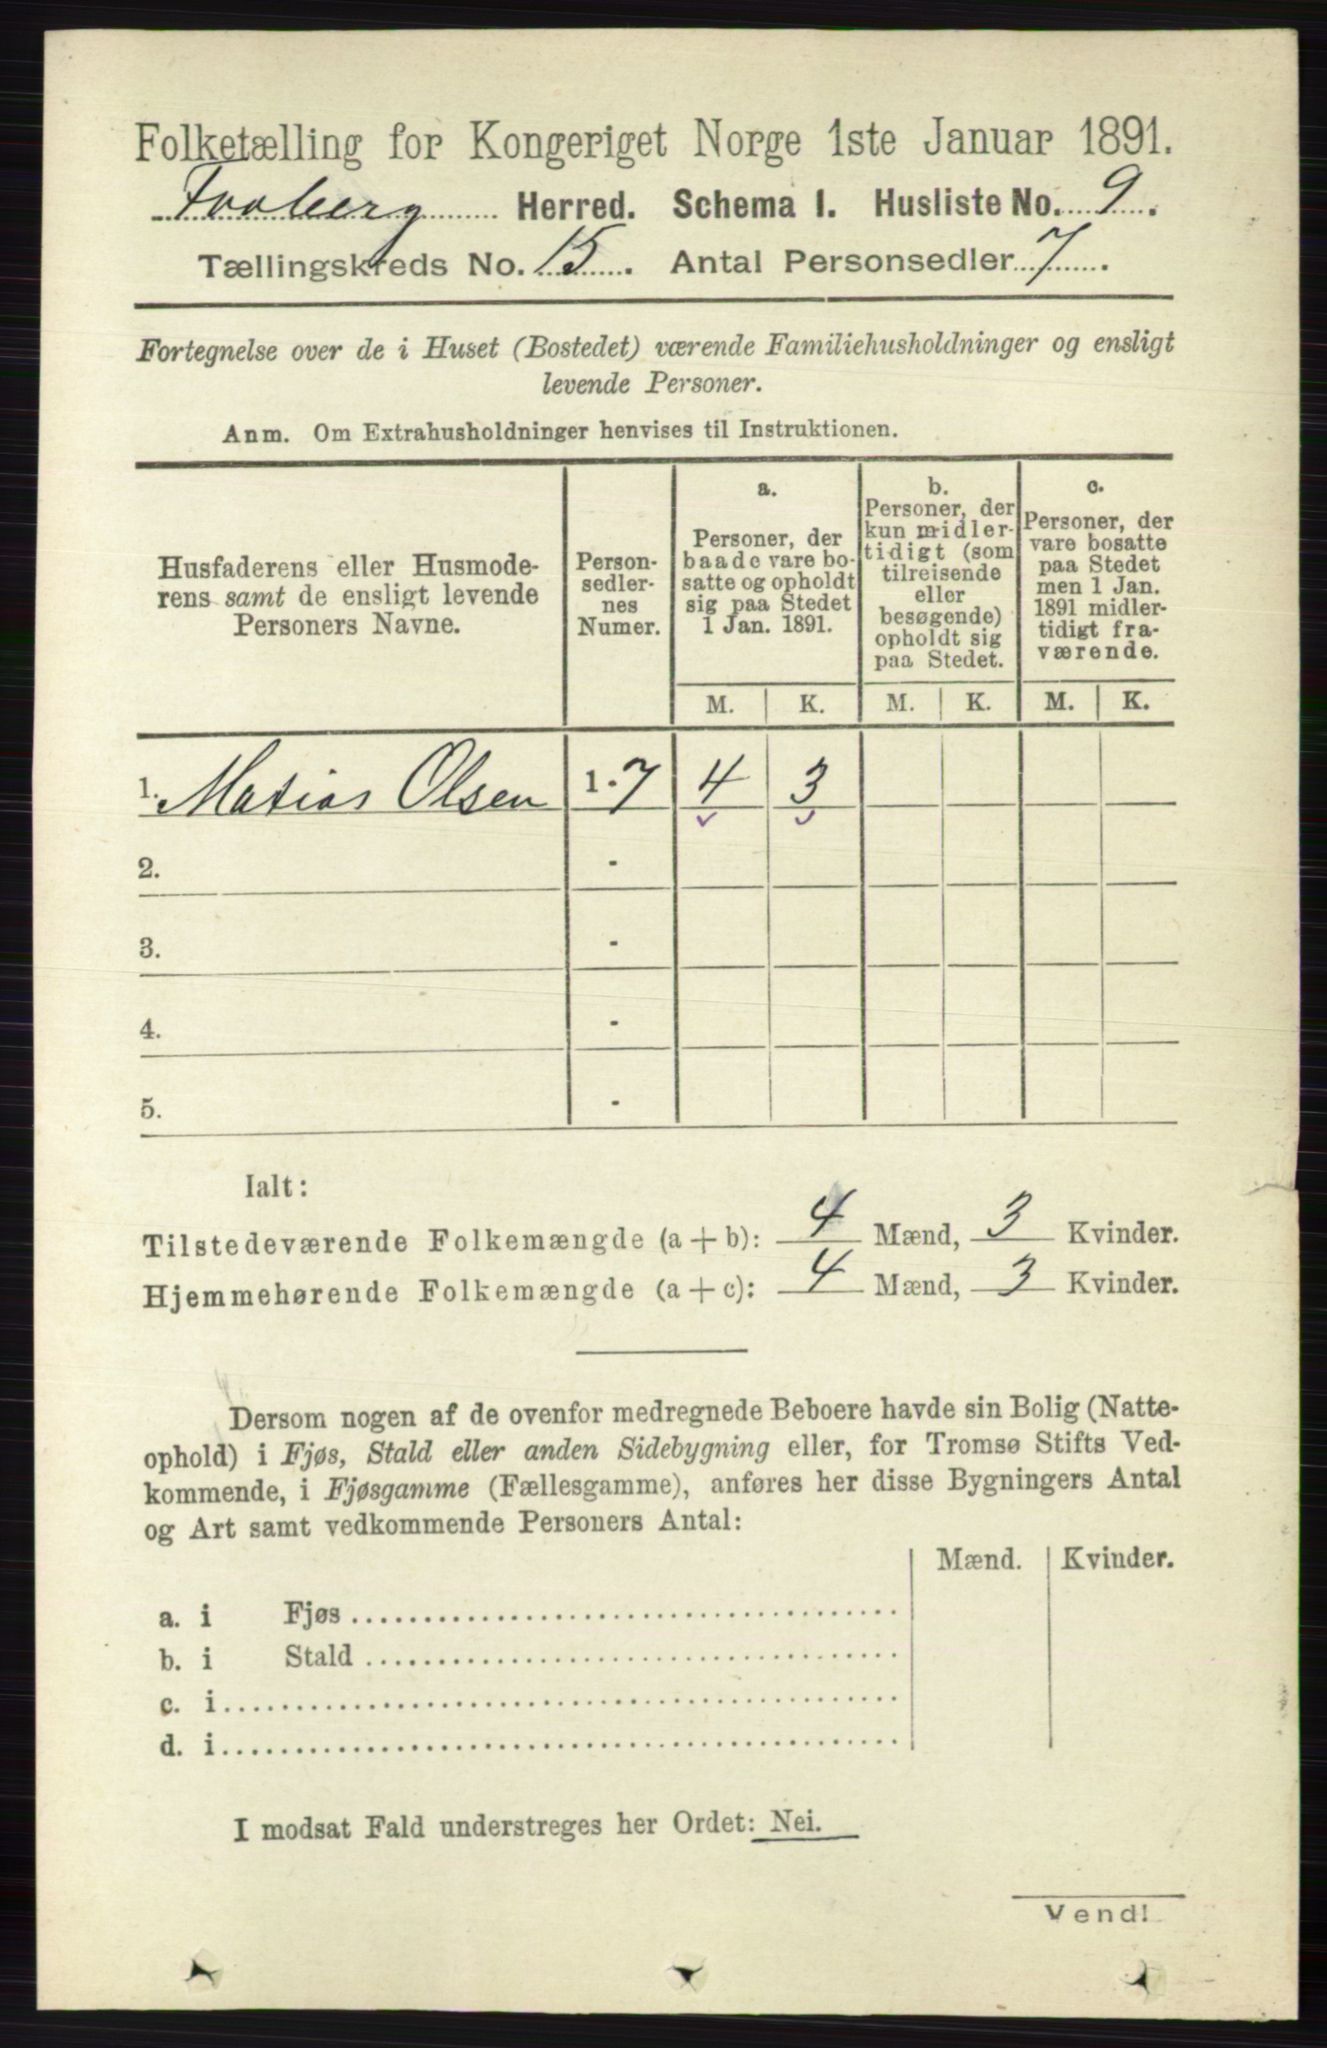 Folketælling for Kongeriget Norge 1ste Januar 1891.
Faaberg Herred. Schema I. Husliste No. 9.
Tællingskreds No. 15. Antal Personsedler 7.
Fortegnelse over de i Huset (Bostedet) værende Familiehusholdninger og ensligt
levende Personer.
Anm. Om Extrahusholdninger henvises til Instruktionen.
Husfaderens eller Husmode-
rens samt de ensligt levende
Personers Navne.
Person-
sedler-
nes
Numer.
a.
Personer, der
baade vare bo-
satte og opholdt
sig paa Stedet
1 Jan. 1891.
b.
Personer, der
kun midler-
tidigt (som
tilreisende
eller
besøgende)
opholdt sig
paa Stedet.
c.
Personer, der
vare bosatte
paa Stedet
men 1 Jan.
1891 midler-
tidigt fra-
værende.
M. K. M. K. M. K.
1. Matias Olsen 1-7 4 3
2. -
3. -
4. -
5. -
Ialt:
Tilstedeværende Folkemængde (a + b): 4 Mænd, 3 Kvinder.
Hjemmehørende Folkemængde (a + c): 4 Mænd, 3 Kvinder.
Dersom nogen af de ovenfor medregnede Beboere havde sin Bolig (Natte-
ophold) i Fjøs, Stald eller anden Sidebygning eller, for Tromsø Stifts Ved-
kommende, i Fjøsgamme (Fællesgamme), anføres her disse Bygningers Antal
og Art samt vedkommende Personers Antal:
Mænd. Kvinder.
a. i Fjøs
b. i Stald
c. i
d. i
I modsat Fald understreges her Ordet: Nei.
Vend!